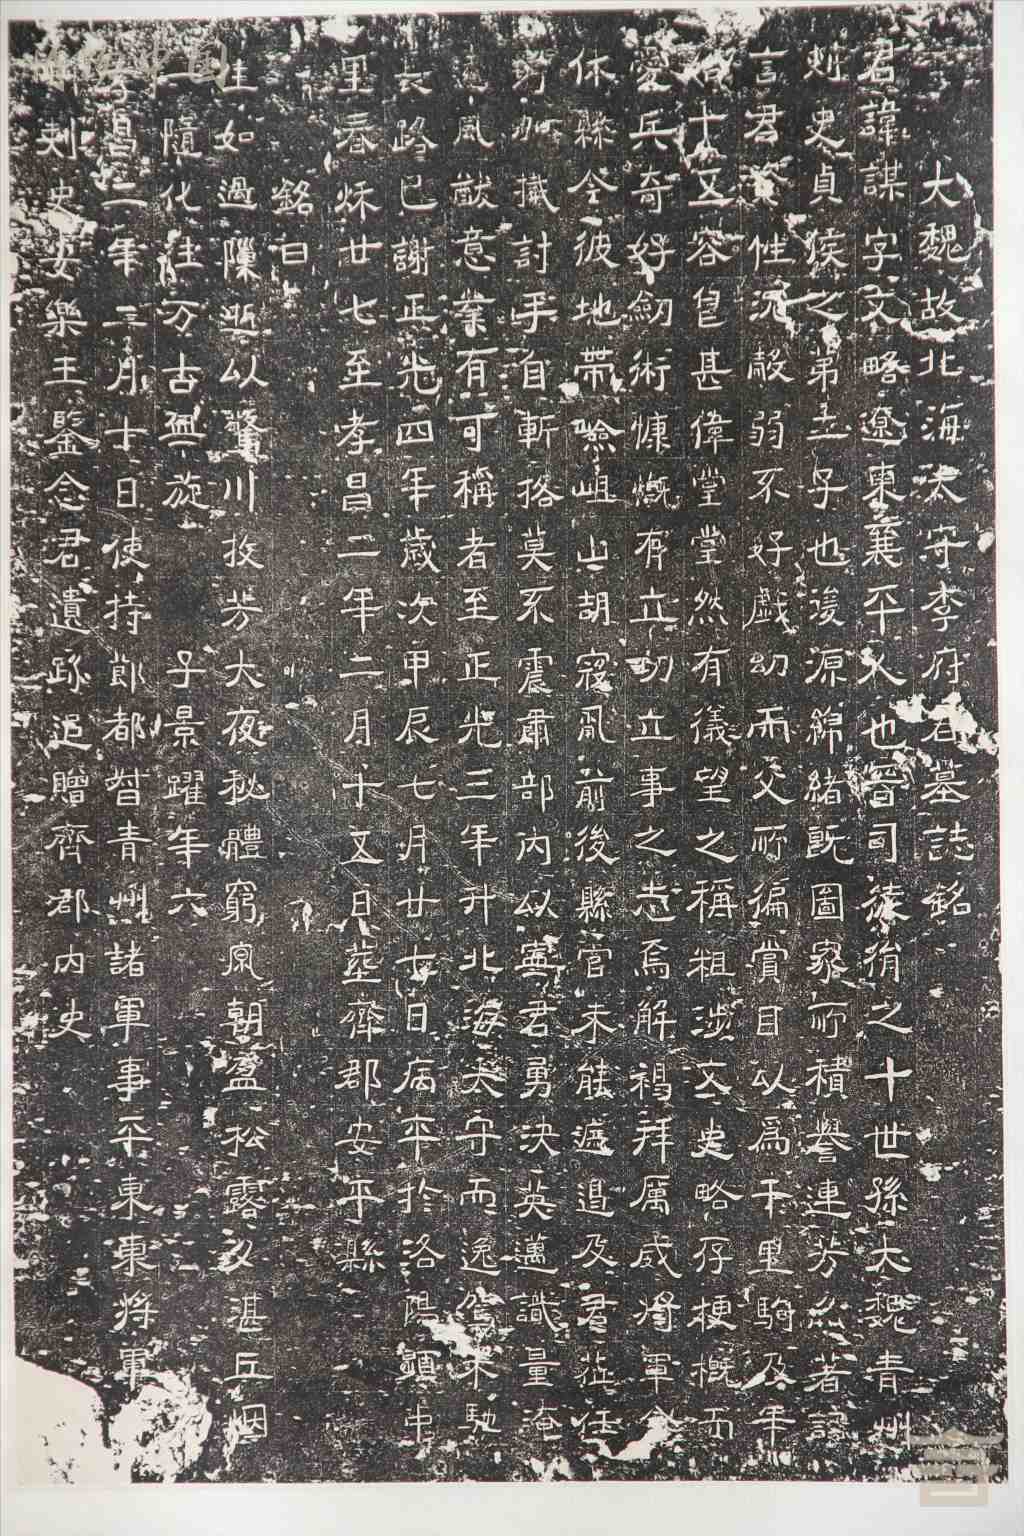 大魏故北海太守李府君墓誌銘
君諱謀字文略遼東襄平人也晉司徒胤之十世孫大魏青州
刺史貞侯之第五子也浚源綿緒既圖家而積譽連芳亦著諺
言君資性沉毅弱不好戲幼而交所徧賞目以爲千里駒及年
十五容皃甚偉堂堂然有儀望之稱粗涉文史略存梗槪而
愛兵奇好劒術慷慨有立功立事之志焉解褐拜厲威將軍
休縣令彼地帶嶮岨山胡寇亂前後縣官未能遏及君莅任
躬加擒討手自斬挌莫不震肅部內以寧君勇決英邁識量淹
遠風猷意業有可稱者至正光三年升北海太守而逸駕未馳
長路已謝正光四年歲次甲辰七月廿七日病卒於洛陽顯中
里春秋廿七至孝昌二年二月十五日葬齊郡安平縣
銘曰
生如過隟逝以驚川攸芳大夜秘體窮泉朝盈松露夕湛丘烟
一隨化往万古無旋 子景躍年六
孝昌二年三月十日使持節都督青州諸軍事平東東將軍
州刺史安樂王鑒念君遺跡追贈齊郡內史